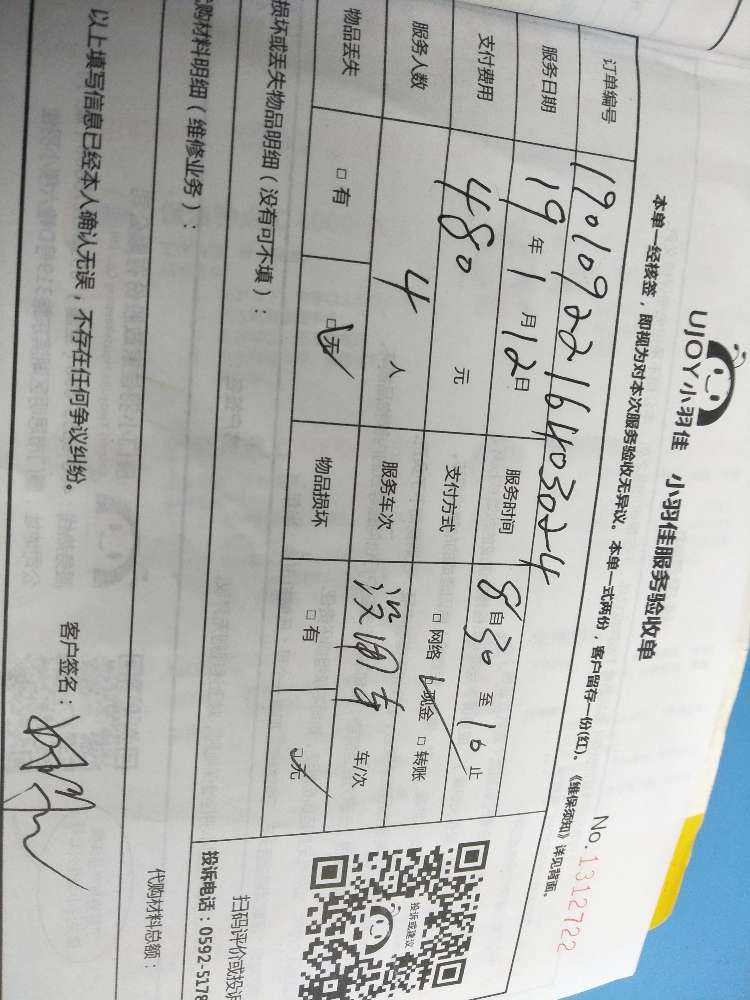 UJOY小羽佳 小羽佳服务验收单
No.1312722
本单一经核签，即视为对本次服务验收无异议。本单一式两份，客户留存一份(红)。《维保须知》详见背面。
订单编号 1901092216403024
服务日期 19年1月12日 服务时间 8自30至10止
支付费用 480元 支付方式 □网络 ☑现金 □转账
服务人数 4人 服务车次 没用车 车/次
物品丢失 □有 ☑无 物品损坏 □有 ☑无
损坏或丢失物品明细（没有可不填）：
购材料明细（维修业务）：
代购材料总额：
以上填写信息已经本人确认无误，不存在任何争议纠纷。
客户签名：
投诉或建议
扫码评价或投诉
投诉电话：0592-5178